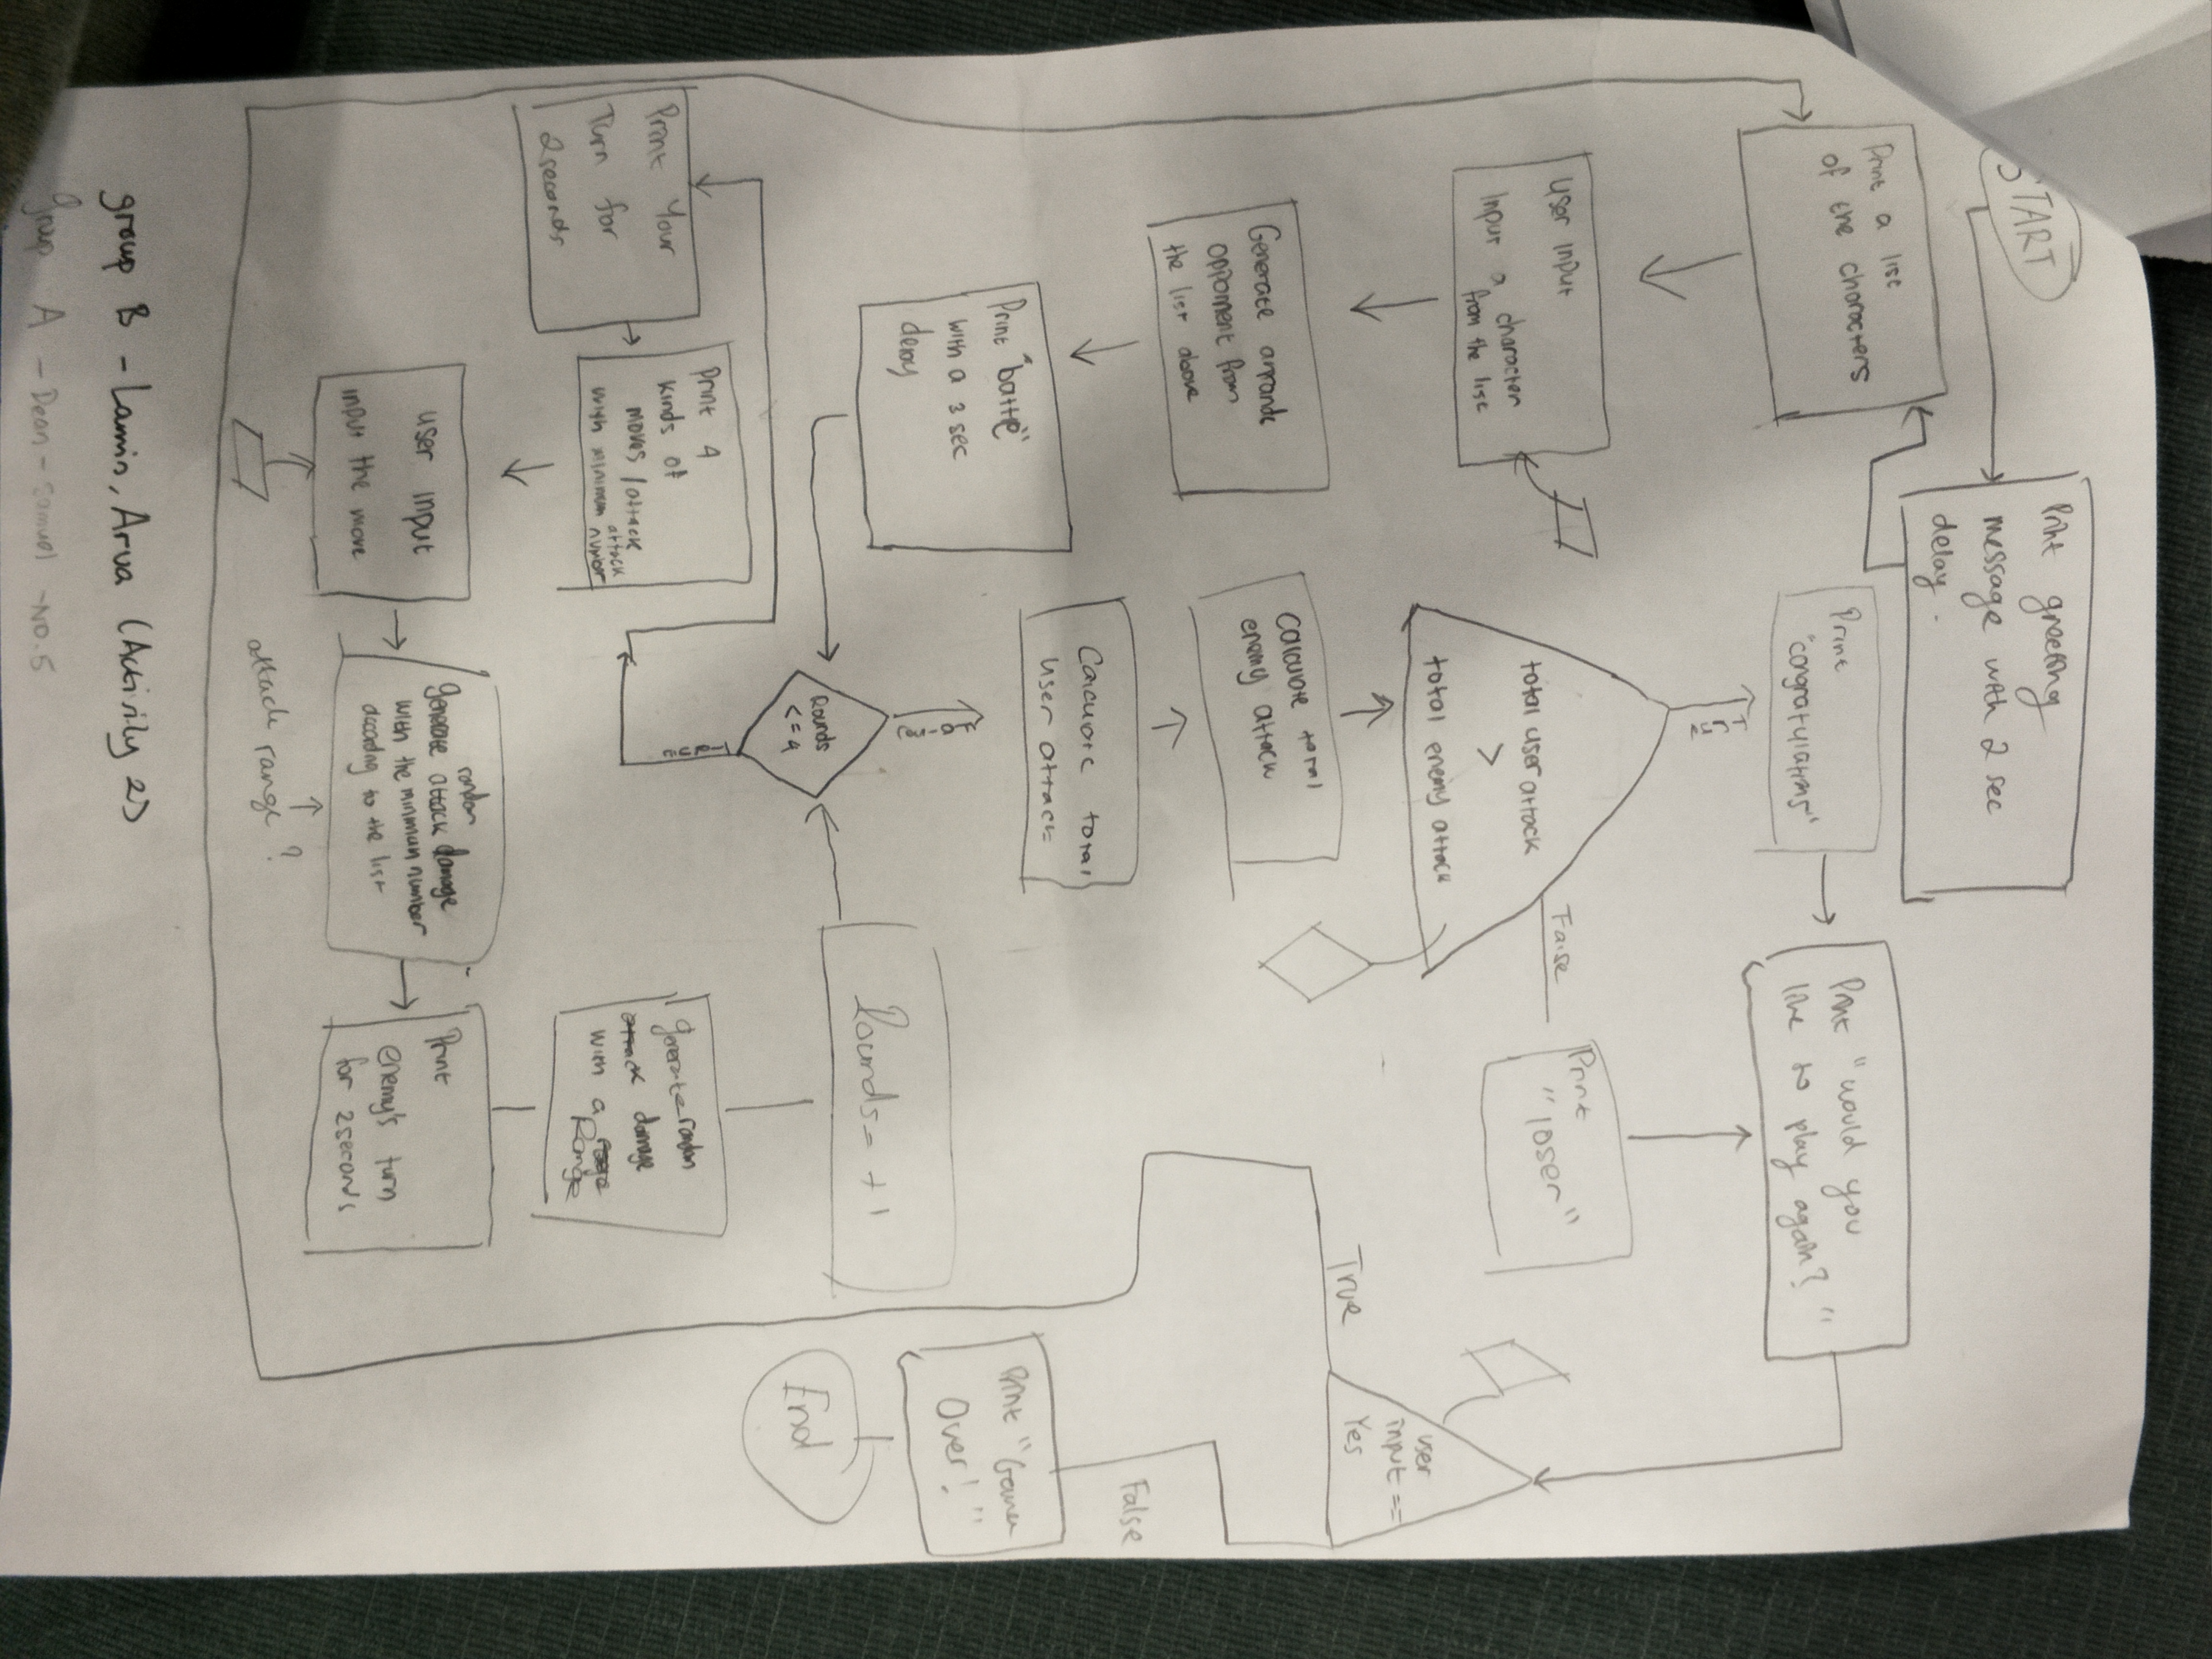 START
Print greeting
message with 2 sec
delay.
Print a list
of the characters
user input
Input a character
from the list
Generate a
opponent from
the list above
Print "battle"
with a 3 sec
delay
Rounds
<= 4
True
False
Print Your
Turn for
2 seconds
Print 4
kinds of
moves / attack
with minimum attack
number
user input
input the move
generate random attack damage
with the minimum number
according to the list
attack range?
Print
enemy's turn
for 2 seconds
generate random
attack damage
with a Range
Rounds = +1
Calculate total
user attack
Calculate total
enemy attack
total user attack
>
total enemy attack
True
False
Print
"congratulations"
Print
"loser"
Print "would you
like to play again? "
user
input ==
Yes
True
False
Print "Game
Over!"
End
group B - Lamin, Arva (Activity 2)
group A - Dean - Samuel - No. 5